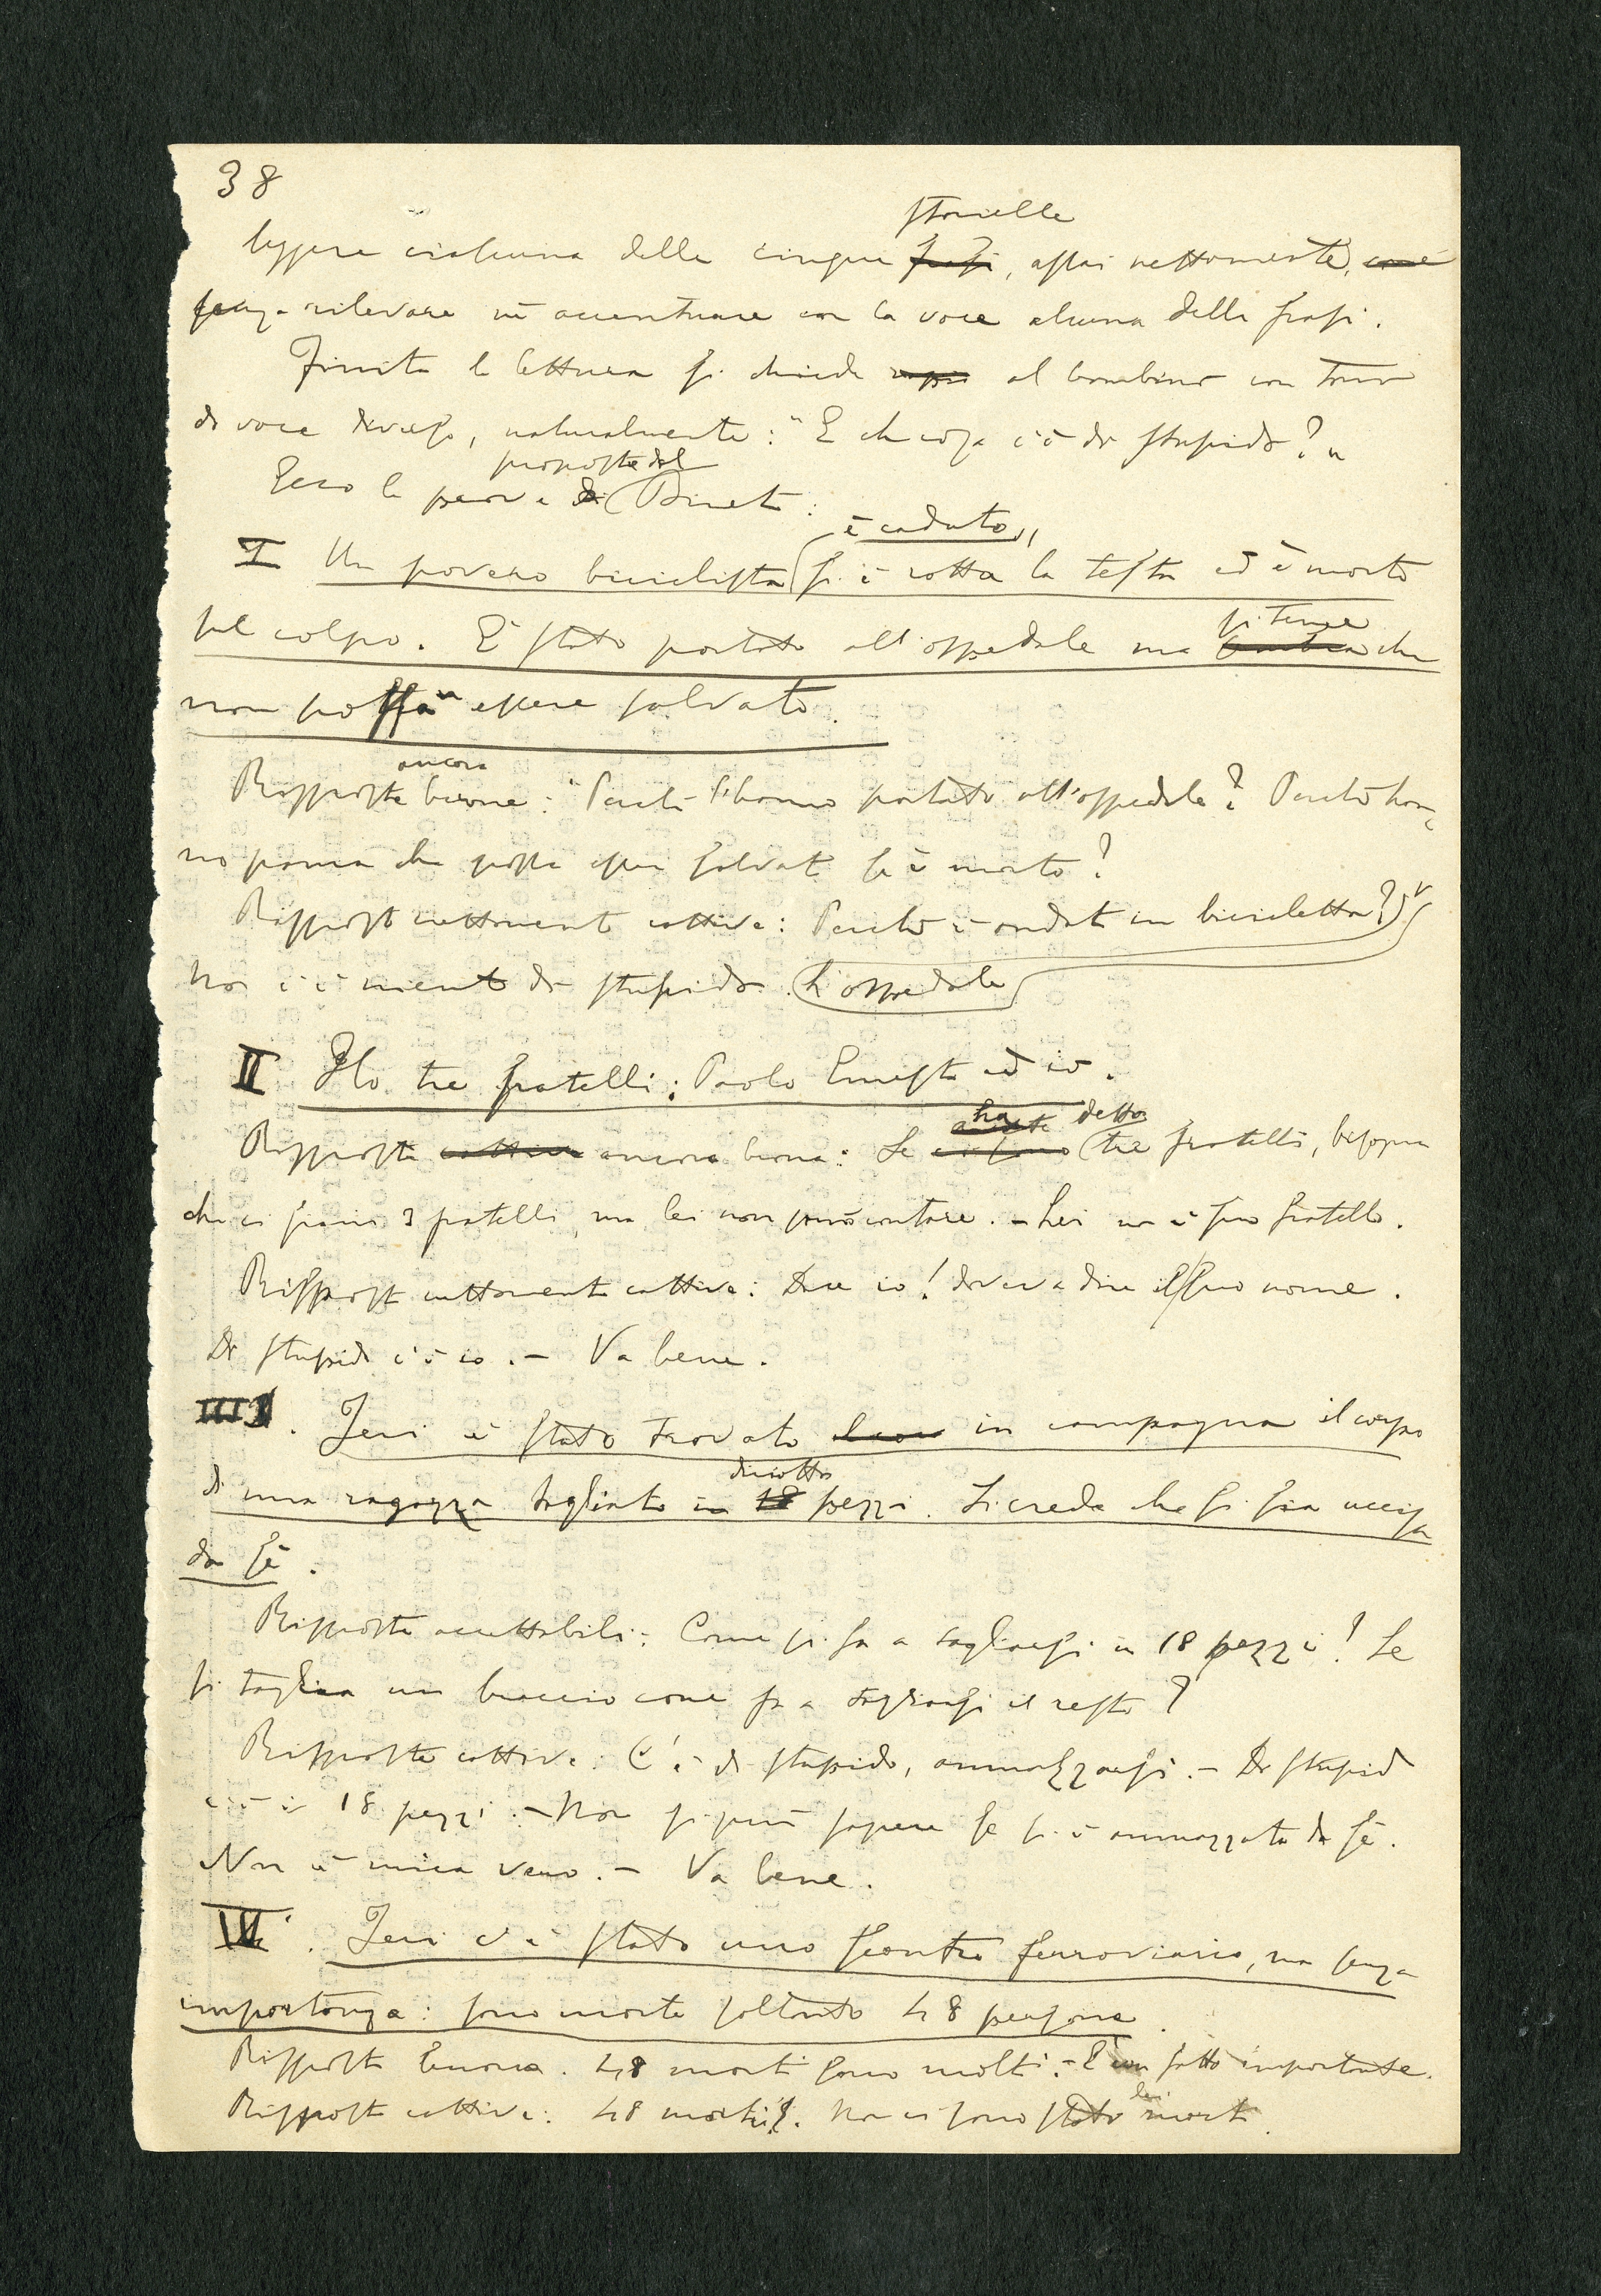 38
storielle
leggere ciascuna delle cinque frasi, assai nettamente,
senza rilevare nè accentuare con la voce alcuna delle frasi.
Finita la lettura si chiede al bambino con tono
di voce diverso, naturalmente: "E che cosa c'è di stupido?"
proposte dal
Ecco le prove di Binet:
è caduto,
I Un povero biciclista si è rotta la testa ed è morto
sul colpo. È stato portato all'ospedale ma si teme che
non possa essere salvato.
ancora
Risposte buone: "Perchè l'hanno portato all'ospedale? Perchè han-
no paura che possa esser salvato se è morto?
Risposte nettamente cattive: Perchè è andato in bicicletta?
Non c'è niente di stupido. L'ospedale
II Ho tre fratelli: Paolo Ernesto ed io.
ha detto
Risposte cattive ancora buone: Se ci sono tre fratelli, bisogna
che ci siano 3 fratelli, ma lei non può contare. - Lei non è suo fratello.
Risposte nettamente cattive: Dice io! doveva dire il suo nome.
Di stupido c'è io. - Va bene.
III. Jeri è stato trovato in campagna il corpo
diciotto
di una ragazza tagliato in 18 pezzi. Si crede che si sia uccisa
da sè.
Risposte accettabili: Come si fa a tagliarsi in 18 pezzi! Se
si taglia un braccio come fa a tagliarsi il resto?
Risposte cattive: C'è di stupido, ammazzarsi. - Di stupido
c'è i 18 pezzi. - Non si può sapere se si è ammazzata da sè.
Non è mica vero. - Va bene.
IV. Jeri c'è stato uno scontro ferroviario, ma senza
importanza: sono morte soltanto 48 persone.
Risposte buone. 48 morti sono molti. - È un fatto importante.
Risposte cattive: 48 morti!. Non ci sono stati dei morti.